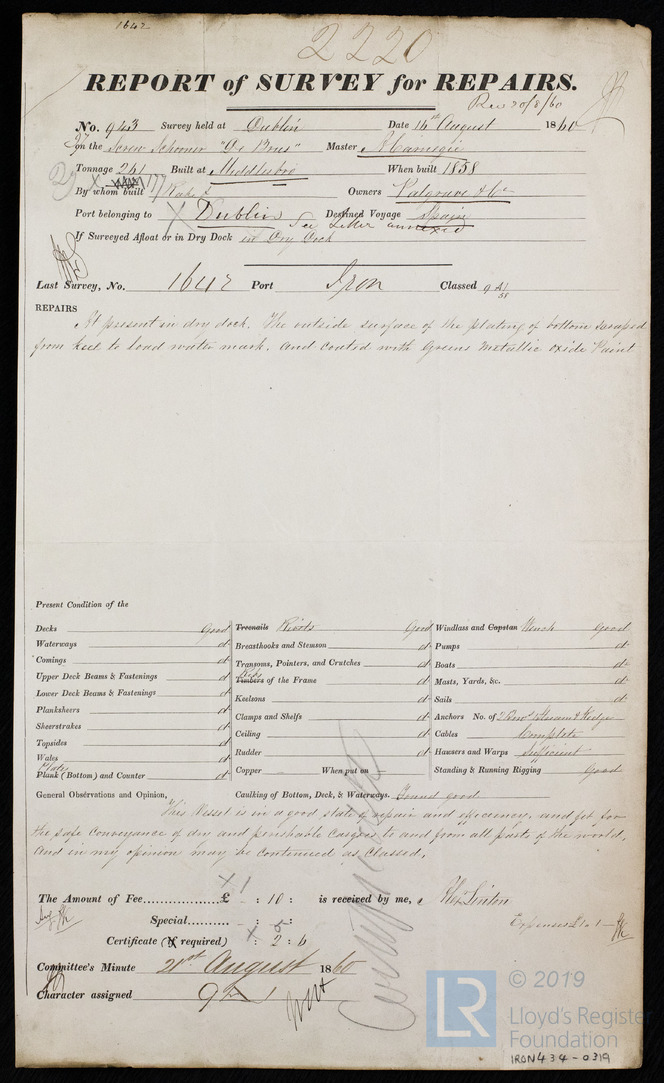 1642
2220
REPORT of SURVEY for REPAIRS.
Rec 20/8/60
No. 943 Survey held at Dublin Date 14th August 1860
on the Screw Schooner "De Brus" Master Carnegie
Tonnage 261 Built at Middlesbro When built 1858
By whom built Owners Palgrave & Co
Port belonging to Dublin Destined Voyage Spain
See Letter annexed
If Surveyed Afloat or in Dry Dock in Dry Dock
Last Survey, No. 1642 Port Iron Classed 9 A1 58
REPAIRS
At present in dry dock. The outside surface of the plating of bottom scraped
from keel to load water mark. and coated with Greens Metallic Oxide Paint
Present Condition of the
Decks Good Treenails Rivets Good Windlass and Capstan Winch Good
Waterways do Breasthooks and Stemson do Pumps do
Comings do Transoms, Pointers, and Crutches do Boats do
Upper Deck Beams & Fastenings do Timbers Ribs of the Frame do Masts, Yards, &c. do
Lower Deck Beams & Fastenings do Keelsons do Sails do
Planksheers do Clamps and Shelfs do Anchors No. of 2 Bowr Stream & Kedge
Sheerstrakes do Ceiling do Cables Complete
Topsides do Rudder do Hawsers and Warps Sufficient
Wales do Copper When put on Standing & Running Rigging Good
Plates
Plank (Bottom) and Counter do
General Observations and Opinion, Caulking of Bottom, Deck, & Waterways. Found good
This Vessel is in a good state of repair and efficiency, and fit for
the safe Conveyance of dry and perishable Cargoes to and from all parts of the world,
and in my opinion may be continued as Classed,
The Amount of Fee £ - : 10 : is received by me, Linton
Special - : - :
Expenses £1 . 1 -
Certificate (if required) : 2 : 6
Committee's Minute 21st August 1860
Character assigned 9 A 1
© 2019
LR
Lloyd's Register
Foundation
IRON434-0319